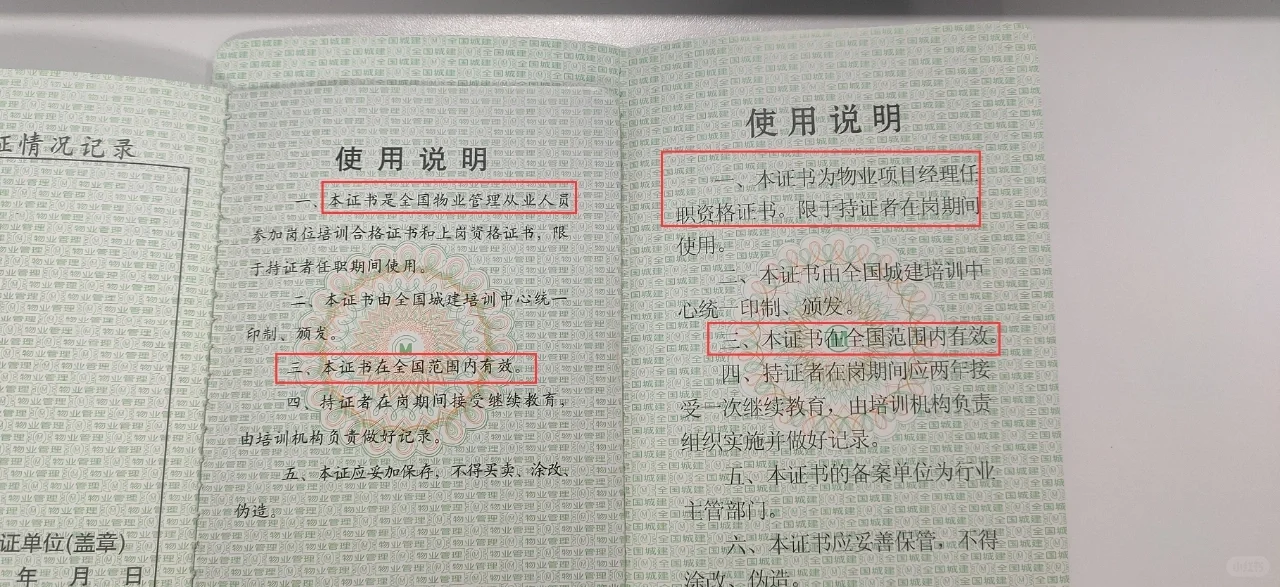 证情况记录
证单位(盖章)
年 月 日
使用说明
一、本证书是全国物业管理从业人员
参加岗位培训合格证书和上岗资格证书，限
于持证者任职期间使用。
二、本证书由全国城建培训中心统一
印制、颁发。
三、本证书在全国范围内有效。
四、持证者在岗期间接受继续教育，
由培训机构负责做好记录。
五、本证应妥加保存，不得买卖、涂改、
伪造。
使用说明
一、本证书为物业项目经理任
职资格证书。限于持证者在岗期间
使用。
二、本证书由全国城建培训中
心统一印制、颁发。
三、本证书在全国范围内有效。
四、持证者在岗期间应两年接
受一次继续教育，由培训机构负责
组织实施并做好记录。
五、本证书的备案单位为行业
主管部门。
六、本证书应妥善保管，不得
涂改、伪造。
小红书